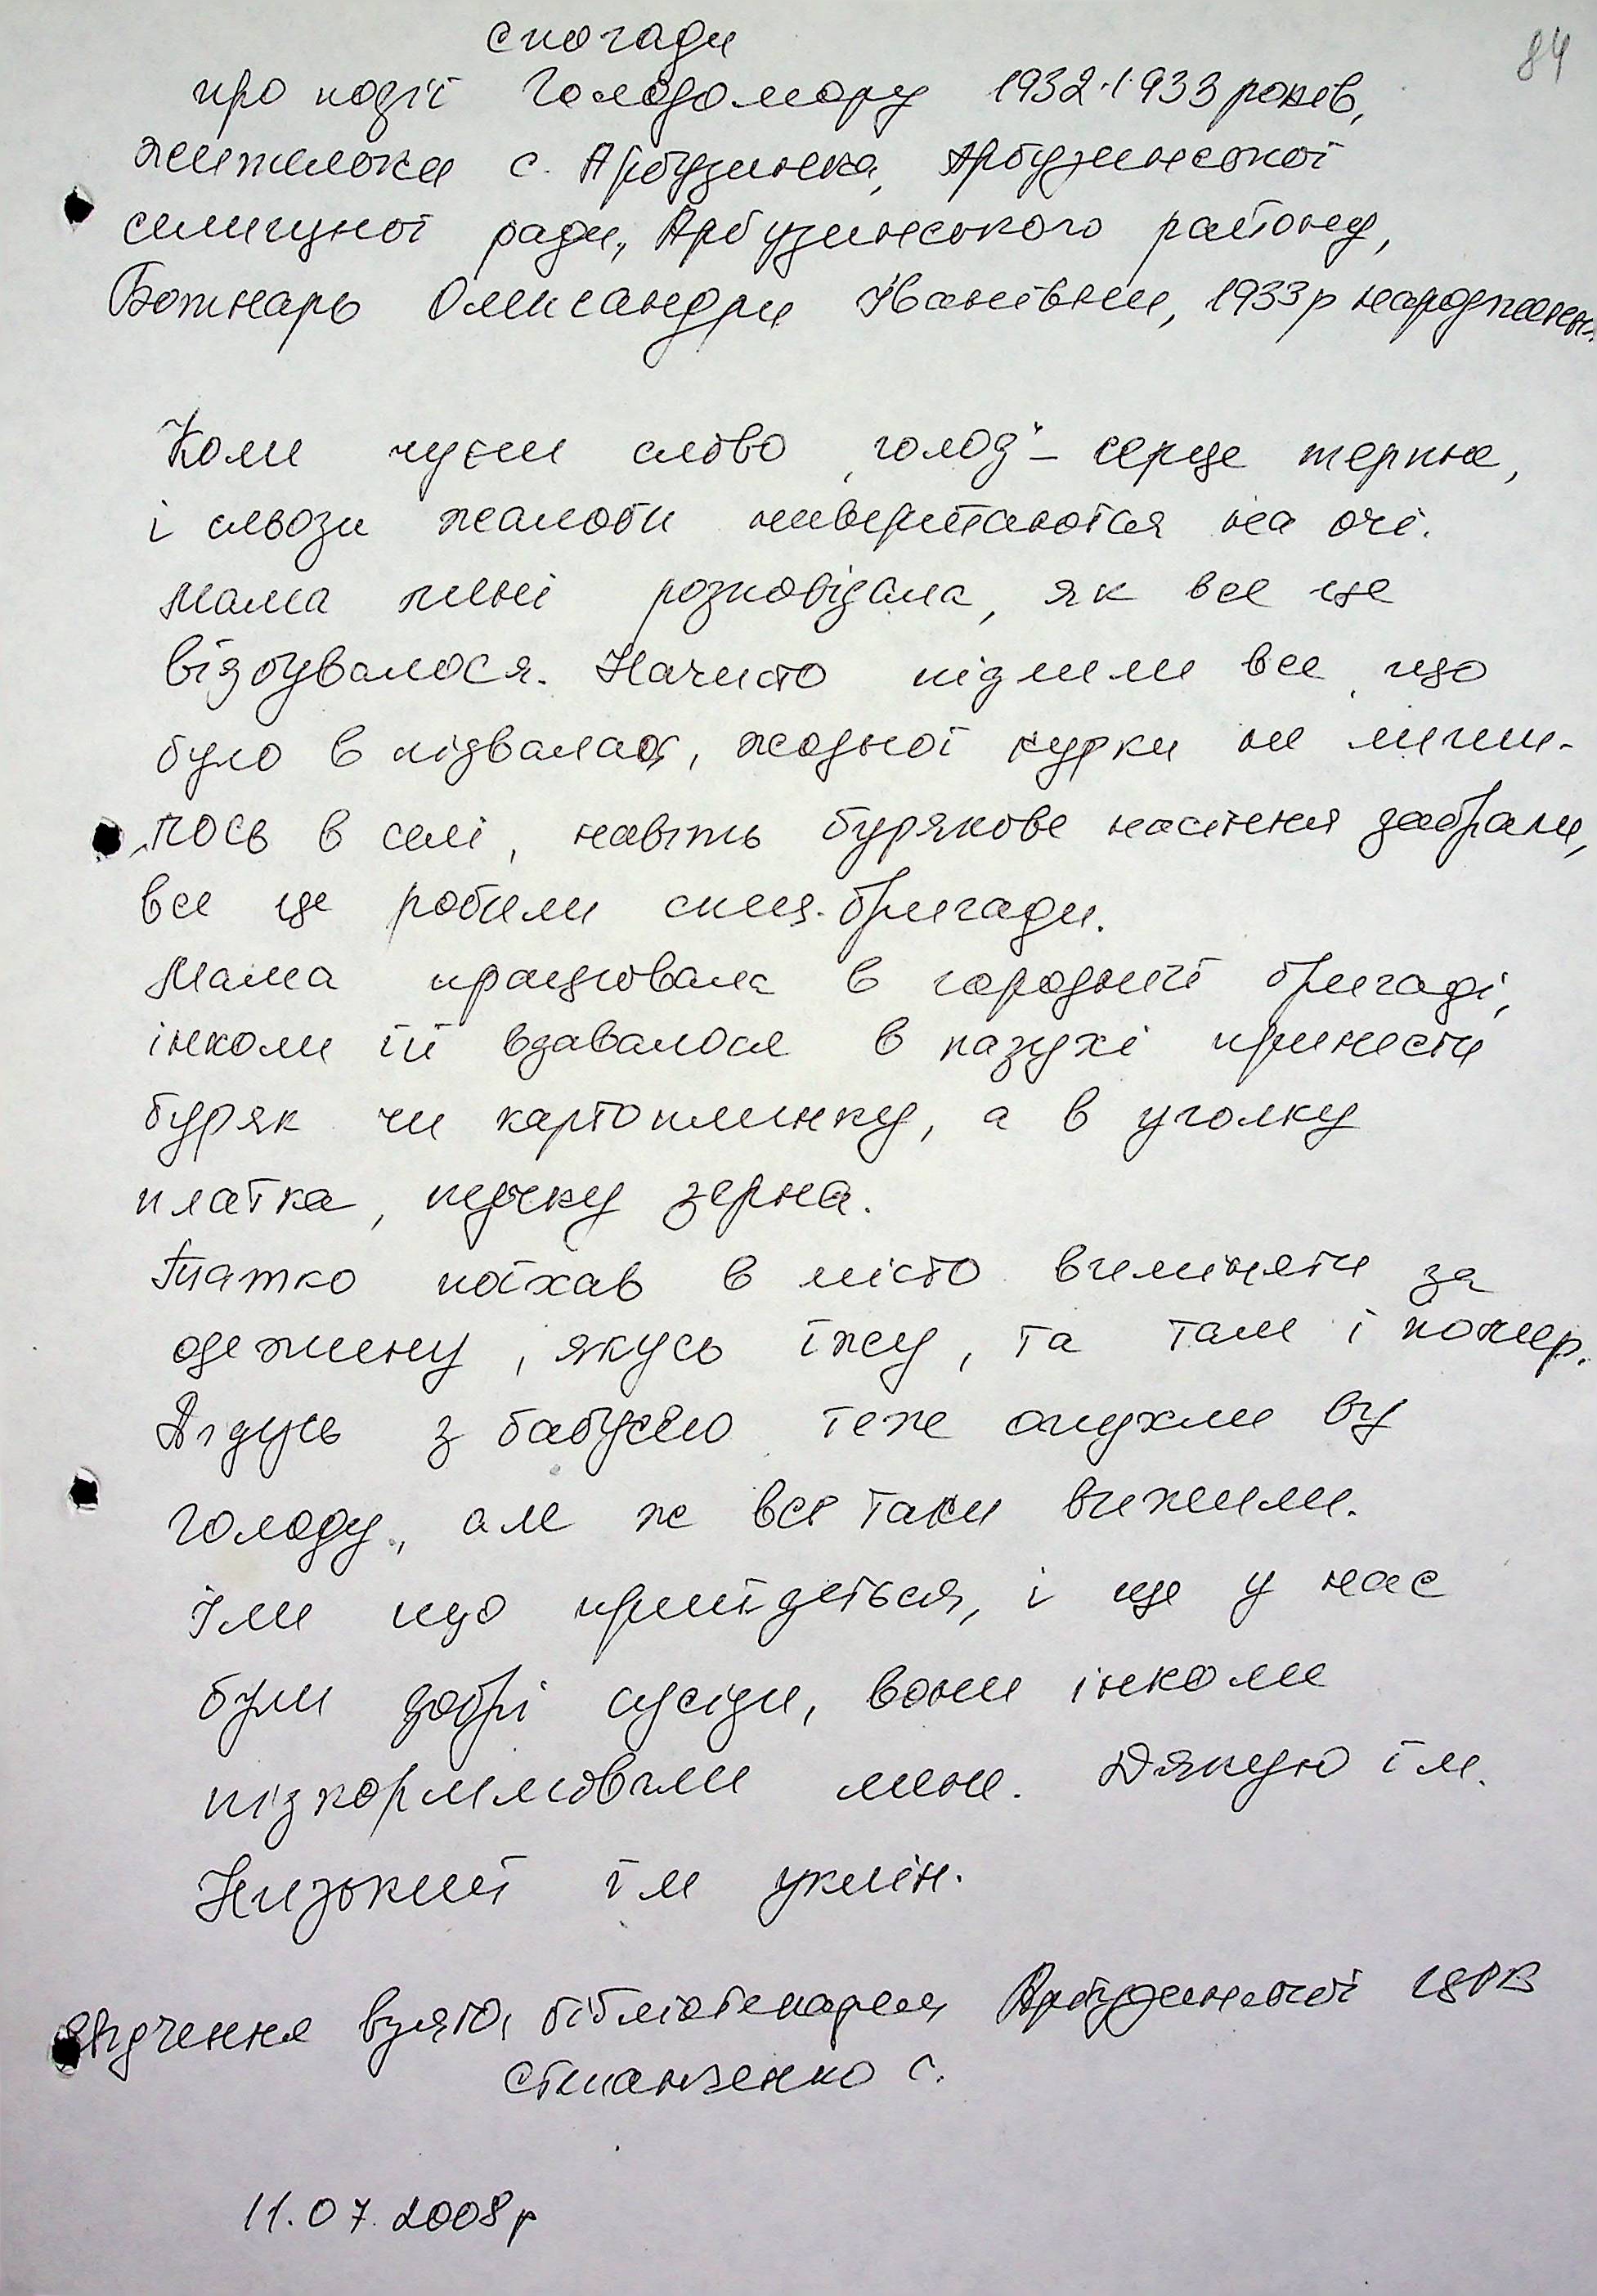 84
спогади
про події Голодомору 1932-1933 років,
жительки с. Арбузинка, Арбузинської
селищної ради, Арбузинського району,
Божнарь Олександри Іванівни, 1933р народження
Коли чуєш слово "голод" – серце терпне,
і сльози жалоби навертаються на очі.
Мама мені розповідала, як все це
відбувалося. Начисто підмели все, що
було в підвалах, жодної курки не лиши-
лось в селі, навіть бурякове насіння забрали,
все це робили спец. бригади.
Мама працювала в городній бригаді,
інколи їй вдавалося в пазухі принести
буряк чи картоплинку, а в уголку
платка, пучку зерна.
Татко поїхав в місто виміняти за
одежину, якусь їжу, та там і помер.
Дідусь з бабусею теж опухли від
голоду, але ж все таки вижили.
Їли що прийдеться, і ще у нас
були добрі сусіди, вони інколи
підкормлювали мене. Дякую їм.
Низький їм уклін.
Свідчення взято, бібліотекарем Арбузинської ЦРБ
С.
11.07.2008р